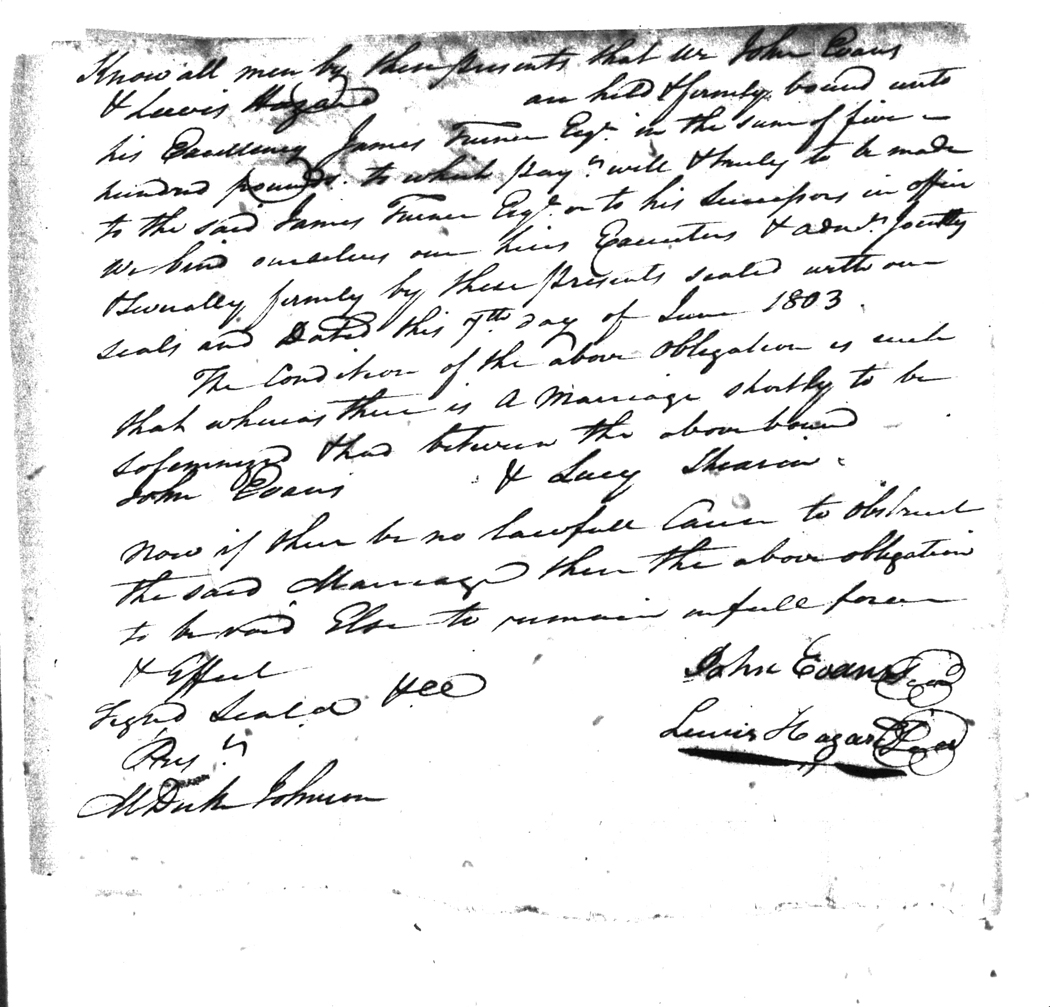 Know all men by these presents that we John Evans
& Lewis Hazard are held & firmly bound unto
his Excellency James Turner Esqr. in the sum of five
hundred pounds. to which paymt. well & truly to be made
to the said James Turner Esqr. or to his Successors in office
we bind ourselves our heirs Executors & admrs. jointly
& severally firmly by these presents sealed with our
seals and Dated this 7th day of June 1803.
The Condition of the above Obligation is such
that whereas there is a Marriage shortly to be
solemnized & had between the above bound
John Evans & Lucy Shearin
now if there be no lawfull Cause to Obstruct
the said Marriage then the above obligation
to be void Else to remain in full force
& Effect
Signd Seald &
John Evans Seal
Lewis Hazard Seal
M Duke Johnson